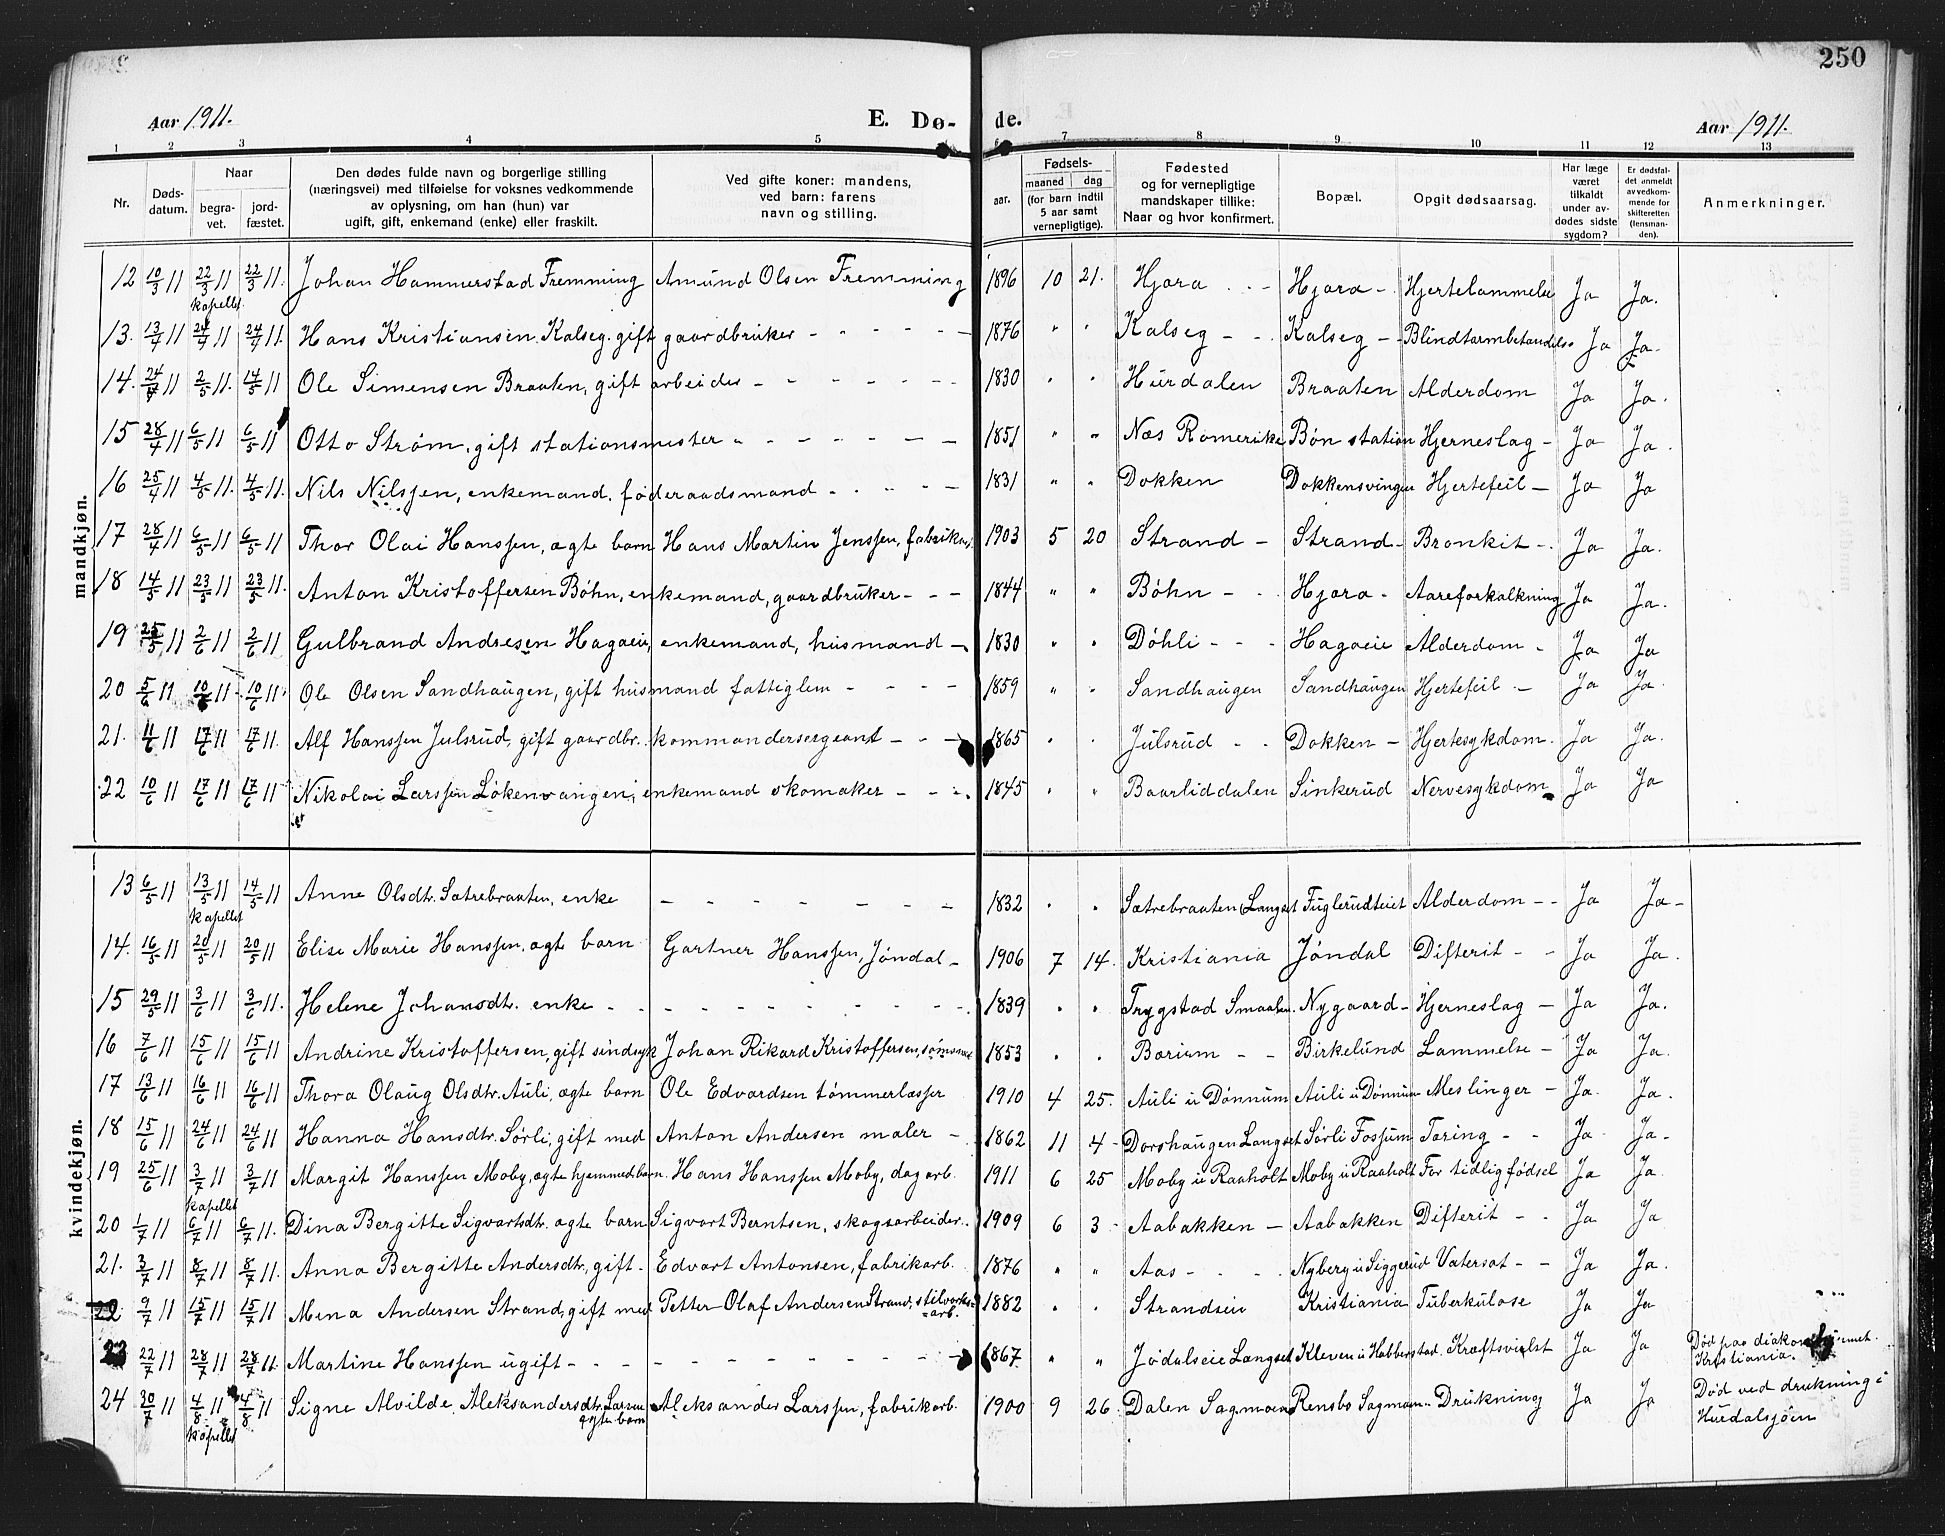 250
Aar 1911. E. Dø- de. Aar 1911.
1 2 3 4 5 6 7 8 9 10 11 12 13
Nr. Døds-datum. Naar begra-vet. jord-fæstet. Den dødes fulde navn og borgerlige stilling (næringsvei) med tilføielse for voksnes vedkommende av oplysning, om han (hun) var ugift, gift, enkemand (enke) eller fraskilt. Ved gifte koner: mandens, ved barn: farens navn og stilling. aar. Fødsels- maaned dag (for barn indtil 5 aar samt vernepligtige). Fødested og for vernepligtige mandskaper tillike: Naar og hvor konfirmert. Bopæl. Opgit dødsaarsag. Har læge været tilkaldt under av-dødes sidste sygdom? Er dødsfal-det anmeldt av vedkom-mende for skifteretten (lensman-den). Anmerkninger.
mandkjøn.
12 10/3 11 22/3 11 kapellet 22/3 11. Johan Hammerstad Fremming Amund Olsen Fremming 1896 10 21. Hjara - Hjara - Hjertelammelse Ja Ja.
13. 13/4 11 24/4 11 24/4 11. Hans Kristiansen Kalseg. gift gaardbruker - - - - 1876 " " Kalseg - - Kalseg - Blindtarmbetændels. Ja Ja.
14. 24/4 11 2/5 11. 14/5 11 Ole Simensen Braaten, gift arbeider - - - - 1830 " " Hurdalen Braaten Alderdom Ja Ja.
15 28/4 11 6/5 11 6/5 11 Otto Strøm, gift stationsmester - - - - 1851 " " Næs Romerike Bøn station Hjerneslag - Ja Ja.
16 25/4 11 4/5 11. 4/5 11. Nils Nilssen, enkemand. føderaadsmand - - - - 1831 " " Dokken Dokkensvingen Hjertefeil - Ja Ja
17 28/4 11 6/5 11 6/5 11 Thor Olai Hanssen, ægte barn Hans Martin Jenssen, fabrikar. 1903 5 20 Strand - Strand - Bronkit - Ja Ja.
18 14/5 11 23/5 11 23/5 11. Anton Kristoffersen Bøhn, enkemand, gaardbruker - - - 1844 " " Bøhn - - Hjara - Aareforkalkning Ja Ja.
19 25/5 11 2/6 11 2/6 11 Gulbrand Andresen Hagaeie, enkemand, husmand - 1830 " " Døhli - - Hagaeie Alderdom - Ja Ja
20 5/6 11 10/6 11 10/6 11. Ole Olsen Sandhaugen, gift husmand fattiglem - - - 1859 " " Sandhaugen Sandhaugen Hjertefeil - Ja Ja.
21. 11/6 11 17/6 11 17/6 11. Alf Hanssen Julsrud, gift gaardbr. kommandersergeant - - - 1865 " " Julsrud - - Dokken - Hjertesykdom. Ja Ja.
22 10/6 11 17/6 11 17/6 11 Nikolai Larssen Løkenvangen, enkemand skomaker - - - 1845 " " Baarliddalen Sinkerud Nervesykdom Ja Ja
kvindekjøn.
13 6/5 11 13/5 11 kapellet 14/5 11 Anne Olsdtr. Sætrebraaten, enke - - - - 1832 " " Sætrebraaten Langset Fuglerudteiet Alderdom - - Ja Ja -
14. 16/5 11 20/5 11 20/5 11 Elise Marie Hanssen. ægte barn Gartner Hanssen, Jøndal - 1906 7 14. Kristiania Jøndal Difterit - - Ja Ja.
15 29/5 11 3/6 11 3/6 11. Helene Johansdtr. enke - - - - 1839 " " Trygstad Smaalen. Nygaard - Hjerneslag - Ja Ja.
16 7/6 11 15/6 11 15/6 11 Andrine Kristoffersen, gift sindsyk Johan Rikard Kristoffersen, sømsme 1853 " " Bærum - - Birkelund Lammelse - Ja Ja.
17 13/6 11 16/6 11 16/6 11 Thora Olaug Olsdtr. Auli, ægte barn Ole Edvardsen tømmerlæsser 1910 4 25. Auli u Dønnum Auli u Dønnum Meslinger - Ja. Ja.
18 15/6 11 24/6 11 24/6 11 Hanna Hansdtr. Sørli, gift med Anton Andersen maler - 1862 11 4 - Dorshaugen Langset Sørli Fossum Tæring - - Ja Ja -
19 25/6 11 3/7 11 kapellet 3/7 11 Margit Hanssen Moby, ægte hjemmedbarn. Hans Hanssen Moby, dagarb. 1911 6 25 Moby u Raaholt Moby u Raaholt For tidlig fødsel Ja Ja.
20 1/7 11 6/7 11 6/7 11. Dina Bergitte Sigvartsdtr. ægte barn Sigvart Berntsen, skogsarbeider. 1909 6 3 - Aabakken - Aabakken Difterit - - Ja Ja
21. 3/7 11 8/7 11 8/7 11. Anna Bergitte Andersdtr, gift - Edvart Antonsen, fabrikarb. 1876 " " Aas - - - Nyberg u Siggerud Vatersot - - Ja Ja.
22 9/7 11 15/7 11 15/7 11 Mena Andersen Strand, gift med Petter Olaf Andersen Strand, stilverks=arb. 1882 " " Strandeie Kristiania Tuberkulose Ja Ja
23 22/7 11 28/7 11 28/7 11. Martine Hanssen ugift - - - - 1867 " " Jødalseie Langset Kleven u Habberstad. Kræftsvulst Ja Ja Død paa Kristiania.
24 30/7 11 4/8 11 kapellet 4/8 11 Signe Alvilde Aleksandersdtr. Larsen ægte barn Aleksander Larssen, fabrikarb. 1900 9 26 Dalen Sagmoen Rensbo Sagmoen Drukning Ja Ja Død ved drukning i Hurdalsjøen